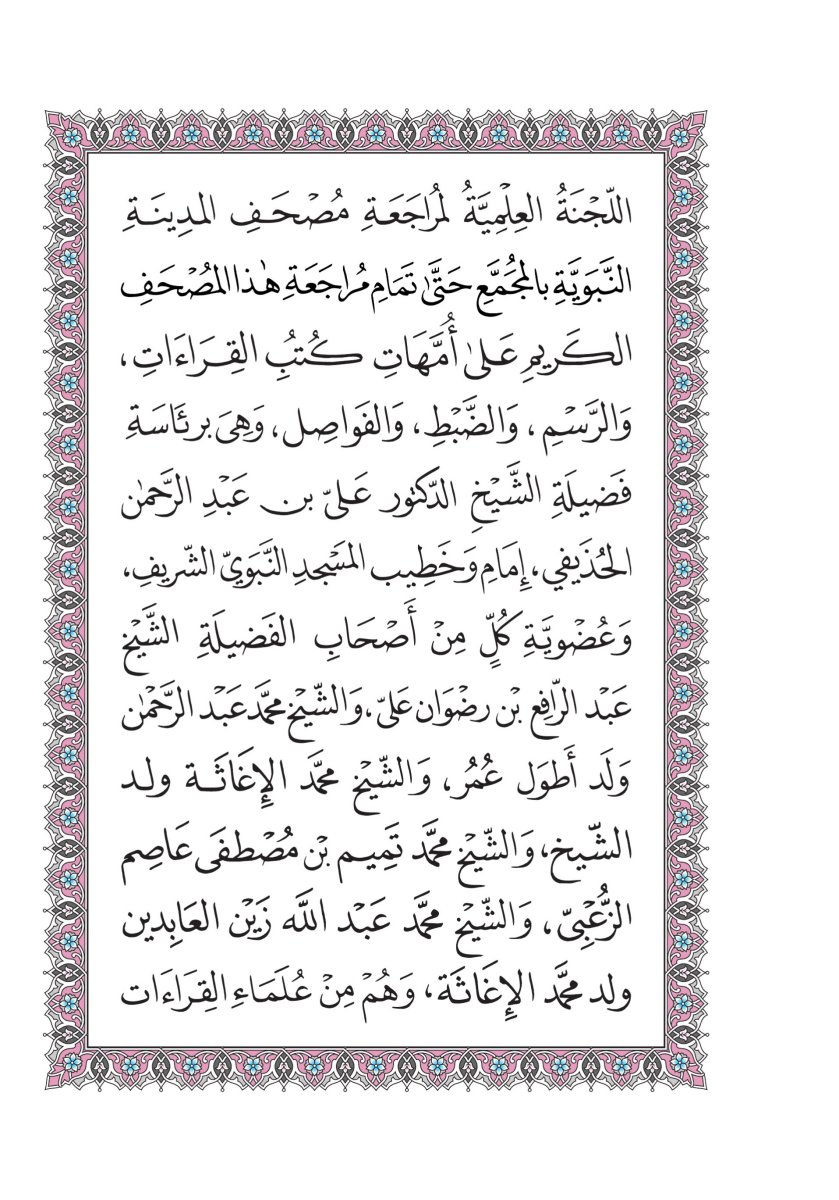 اللَّجْنَةُ العِلْمِيَّةُ لِمُرَاجَعَةِ مُصْحَفِ المدِينَةِ
النَّبَوِيَّةِ بالمجُمَّعِ حَتَّىٰ تَمَامِ مُرَاجَعَةِ هٰذا المُصْحَفِ
الكَرِيمِ عَلىٰ أُمَّهَاتِ كُتُبِ القِرَاءَاتِ،
وَالرَّسْمِ، وَالضَّبْطِ، وَالفَواصِل، وَهِيَ برئَاسَةِ
فَضيلَةِ الشَّيْخِ الدّكتور عَليّ بن عَبْدِ الرَّحمٰن
الحُذَيفي، إِمَامِ وَخَطِيب المَسْجدِ النَّبَوِيّ الشّريفِ،
وَعُضْويَّةِ كُلٍّ مِنْ أَصْحَابِ الفَضيلَةِ الشَّيْخ
عَبْد الرّافِع بْن رضْوَان عَليّ، وَالشّيْخ محمَّد عَبْد الرَّحْمٰن
وَلَد أَطوَل عُمُر، وَالشّيْخ محمَّد الإِغَاثَة ولد
الشّيخ، وَالشّيْخ محمَّد تَمِيم بْن مُصْطفَى عَاصِم
الزُّعْبيّ، وَالشّيْخ محمَّد عَبْد اللَّه زَيْن العَابِدين
ولد محمَّد الإِغَاثَة، وَهُمْ مِنْ عُلَمَاءِ القِرَاءَات